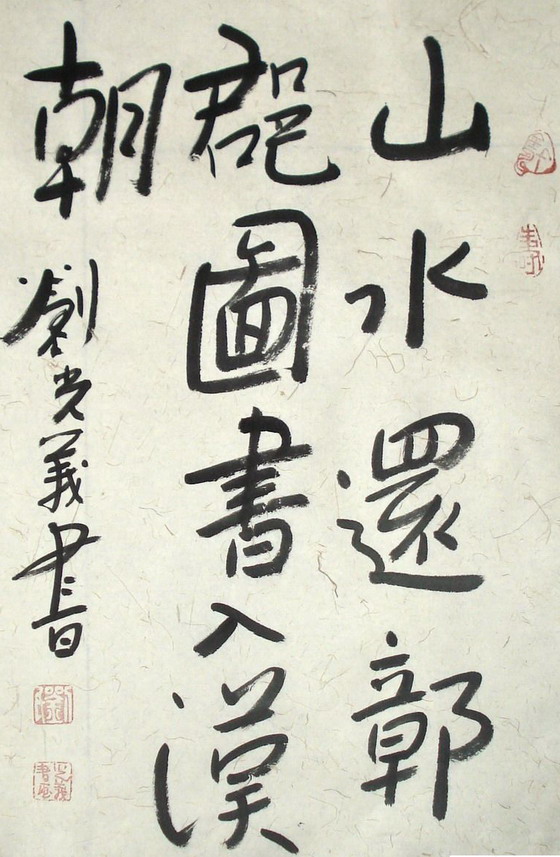 山水還鄣
郡圖書入漢
朝
劉光義書